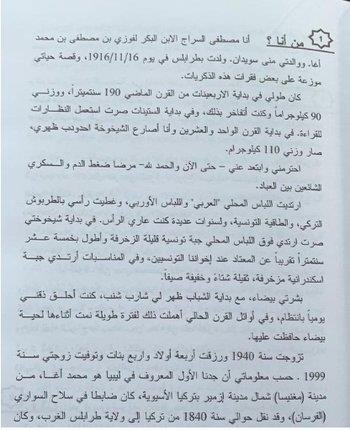 ١ من أنا ؟ أنا مصطفى السراج الابن البكر لفوزي بن مصطفى بن محمد
أغا. ووالدتي منى سويدان. ولدت بطرابلس في يوم 1916/11/16، وقصة حياتي
موزعة على بعض فقرات هذه الذكريات.
كان طولي في بداية الاربعينات من القرن الماضي 190 سنتميتراً، ووزني
90 كيلوجراماً وكنت أتفاخر بذلك، وفي بداية الستينات صرت استعمل النظارات
للقراءة. في بداية القرن الواحد والعشرين وأنا أصارع الشيخوخة احدودب ظهري،
صار وزني 110 كيلوجرام.
احترمني وابتعد عني – حتى الآن والحمد لله- مرضا ضغط الدم والسكري
الشائعين بين العباد.
ارتديت اللباس المحلي "العربي" واللباس الأوربي، وغطيت رأسي بالطربوش
التركي، والطاقية التونسية، ولسنوات عديدة كنت عاري الرأس. في بداية شيخوختي
صرت ارتدي فوق اللباس المحلي جبة تونسية قليلة الزخرفة وأطول بخمسة عشر
سنتمتراً تقريباً عن المعتاد عند إخواننا التونسيين، وفي المناسبات أرتدي جبة
اسكندرانية مزخرفة، ثقيلة شتاءً وخفيفة صيفاً.
بشرتي بيضاء، مع بداية الشباب ظهر لي شارب شنب، كنت أحلق ذقني
يومياً بانتظام، وفي أوائل القرن الحالي أهملت ذلك لفترة طويلة نمت أثناءها لحية
بيضاء حافظت عليها.
تزوجت سنة 1940 ورزقت أربعة أولاد وأربع بنات وتوفيت زوجتي سنة
1999 . حسب معلوماتي أن جدنا الأول المعروف في ليبيا هو محمد أغا، من
مدينة (مغنيسا) شمال مدينة إزمير بتركيا الآسيوية، كان ضابطا في سلاح السواري
(الفرسان)، وقد نقل حوالي سنة 1840 من تركيا إلى ولاية طرابلس الغرب، وكان